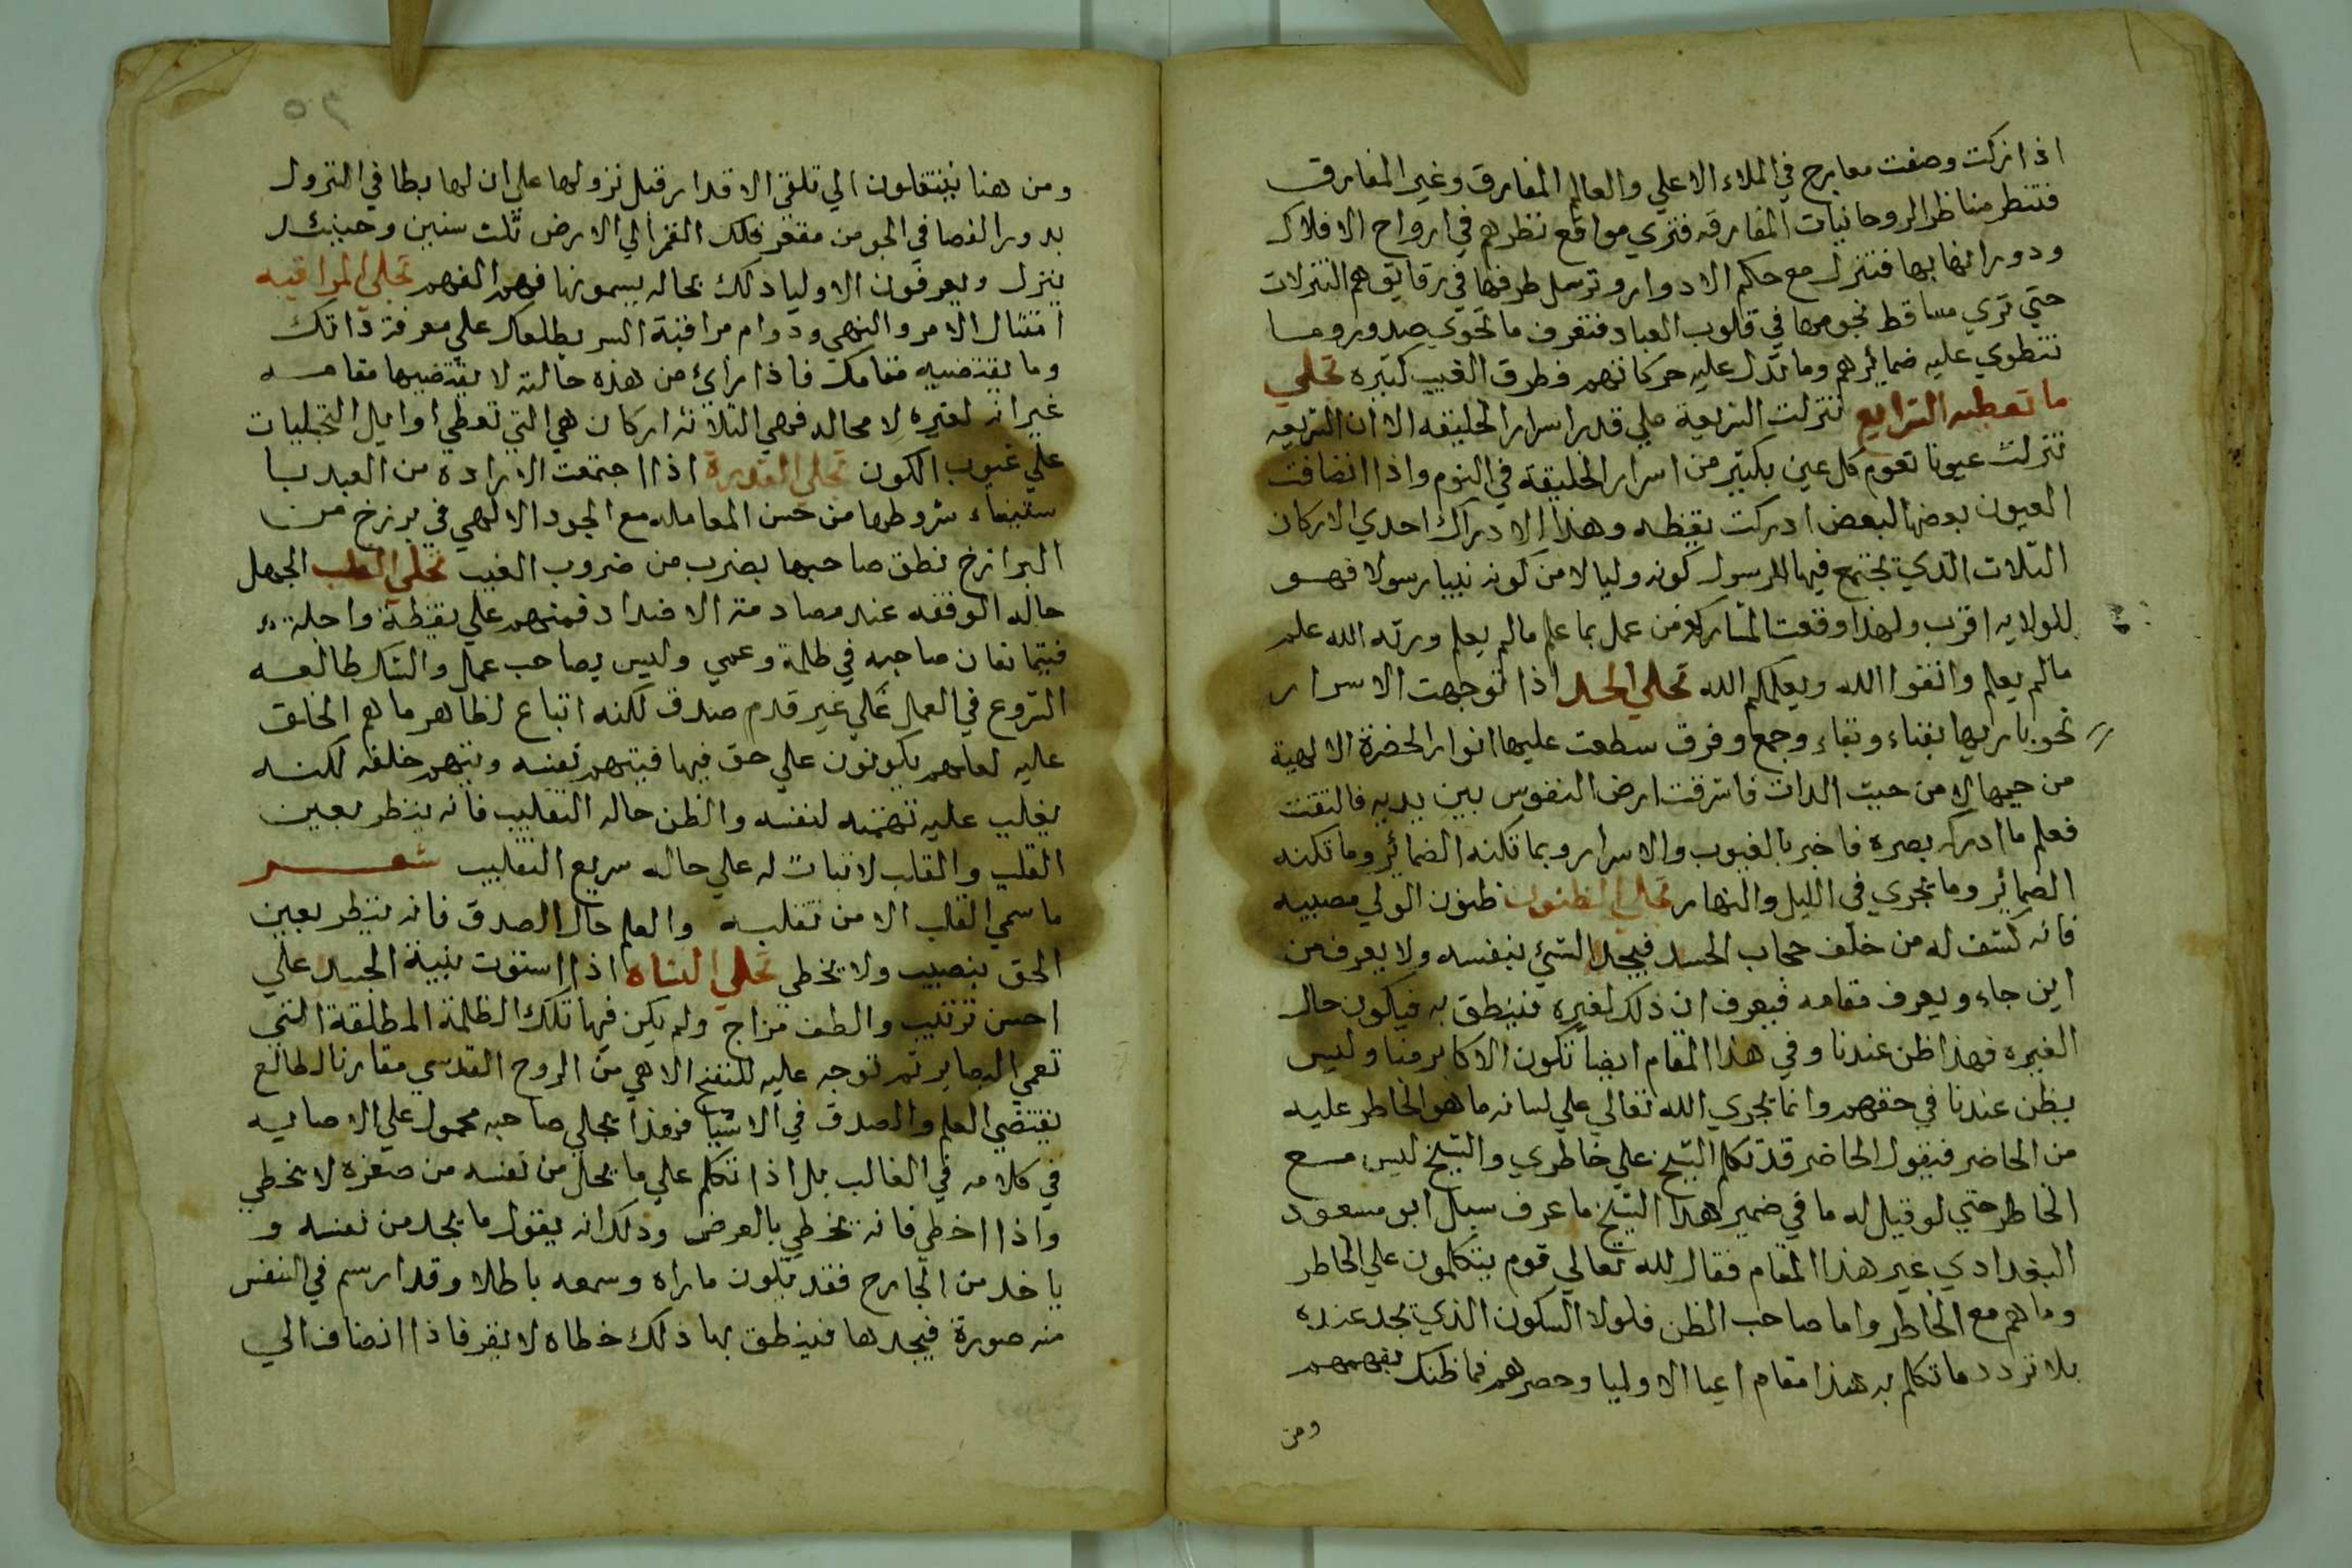 اذا زكت وصفت معارج في الملاء الاعلي والعالم المفارق وغير المفارق
فتنظر مناظر الروحانيات المفارقه فتري مواقع نظرهم في ارواح الافلاك
ودورانها بها فتنزل مع حكم الادوار وترسل طرفها في رقايق هم التنزلات
حتي تري مساقط نجومها في قلوب العباد فتعرف ما تحوي صدور وما
تنطوي عليه ضمائرهم وما تدل عليه حركاتهم فطرق الغيب كثيره تجلي
ما تعطيه الشرايع تنزلت الشريعة علي قدر اسرار الخليقه الا ان الشريعه
تنزلت عيونا تقوم كل عين بكثير من اسرار الخليقة في النوم واذا انضافت
العيون بعضها لبعض ادركت يقظه وهذا الادراك احدي الاركان
الثلاث الذي تجتمع فيها للرسول كونه وليا لا من كونه نبيا رسولا فهو
للولايه اقرب ولهذا وقعت المشاركه فمن عمل بما علم مالم يعلم ورثه الله علم
مالم يعلم واتقوا الله ويعلمكم الله تجلي الحد اذا توجهت الاسرار
نحو باريها بفناء وبقاء وجمع وفرق سطعت عليها انوار الحضرة الالهية
من حيثها لا من حيث الذات فاشرقت ارض النفوس بين يديه فالتفتت
فعلم ما ادركه بصره فاخبر بالغيوب والاسرار وبما تكنه الضمائر وما تكنه
الضمائر وما يجري في الليل والنهار تجلي الظنون ظنون الولي مصيبه
فانه كشف له من خلف حجاب الجسد فيجد الشئ بنفسه ولا يعرف من
اين جاء ويعرف مقامه فيعرف ان ذلك لغيره فينطق به فيكون حال
الغيره فهذا ظن عندنا وفي هذا المقام ايضا تكون الاكابر منا وليس
بظن عندنا في حقهم وانما يجري الله تعالي علي لسانه ما هو الخاطر عليه
من الحاضر فيقول الحاضر قد تكلم الشيخ علي خاطري والشيخ ليس مع
الخاطر حتي لو قيل له ما في ضمير هذا الشيخ ما عرف سيل ابو مسعود
البغدادي غير هذا المقام فقال لله تعالي قوم يتكلمون علي الخاطر
وما هم مع الخاطر واما صاحب الظن فلولا السكون الذي يجد عنده
بلا تردد ما تكلم به هذا مقام اعيا الاوليا وحصرهم فما ظنك بفهمهم
ومن
٦٥
ومن هنا ينتقلون الي تلقي الاقدار قبل نزولها علي ان لها بطا في النزول
يدور القضا في الجو من مقعر فلك القمر الي الارض ثلث سنين وحينئذ
ينزل ويعرفون الاوليا ذلك بحاله يسمونها فهم الفهم تجلي المراقبه
امتثال الامر والنهي ودوام مراقبة السر يطلعك علي معرفة ذاتك
وما يقتضيه مقامك فاذا رائ من هذه حالته لا يقتضيها مقامه
غير انه لغيره لا محاله فهي الثلاثه اركان هي التي تعطي اوايل التجليات
علي غيوب الكون تجلي القدرة اذا اجتمعت الاراده من العبد با
ستيفاء شروطها من حسن المعامله مع الجود الالهي في برزخ من
البرازخ نطق صاحبها بضرب من ضروب الغيب تجلي القلب الجهل
حاله الوقفه عند مصادمة الاضداد فمنهم علي يقظة واحلة
فيتمانعان صاحبه في ظلمة وعمي وليس بصاحب عمل والشك طالعه
الشروع في العمل علي غير قدم صدق لكنه اتباع لظاهر ما هم الخلق
عليه لعلهم يكونون علي حق فيها فيتهم نفسه ويتهم خلقه لكنه
يغلب عليه تهمته لنفسه والظن حاله التقليب فانه ينظر بعين
القلب والقلب لاثبات له علي حاله سريع التقليب شعر
ما سمي القلب الا من تقلبه والعلم حال الصدق فانه ينظر بعين
الحق بنصيب ولا يخطي تجلي النشاه اذا استوت بنية الجسد علي
احسن ترتيب والطف مزاج ولم يكن فيها تلك الظلمة المطلقة التي
تعمي البصاير ثم توجه عليه للنفخ الاهي من الروح القدسي مقارنا لطالع
يقتضي العلم والصدق في الاشيا فهذا تجلي صاحبه محمول علي الاصابه
في كلامه في الغالب بل اذا تكلم علي ما يجد من نفسه من صغره لا يخطي
واذا اخطي فانه يخطي بالعرض وذلك انه يقول ما يجد من نفسه و
ياخد من الخارج فقد يكون ماراه وسمعه باطلا وقد ارسم في النفس
منه صورة فيجدها فينطق بها ذلك خطاه لا يقر فاذا انضاف الي